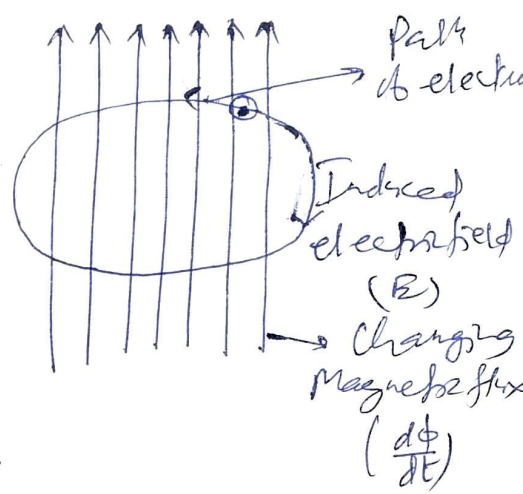 Path
of electro
Induced
electric field
(E)
Changing
Magnetic flux
(dφ/dt)